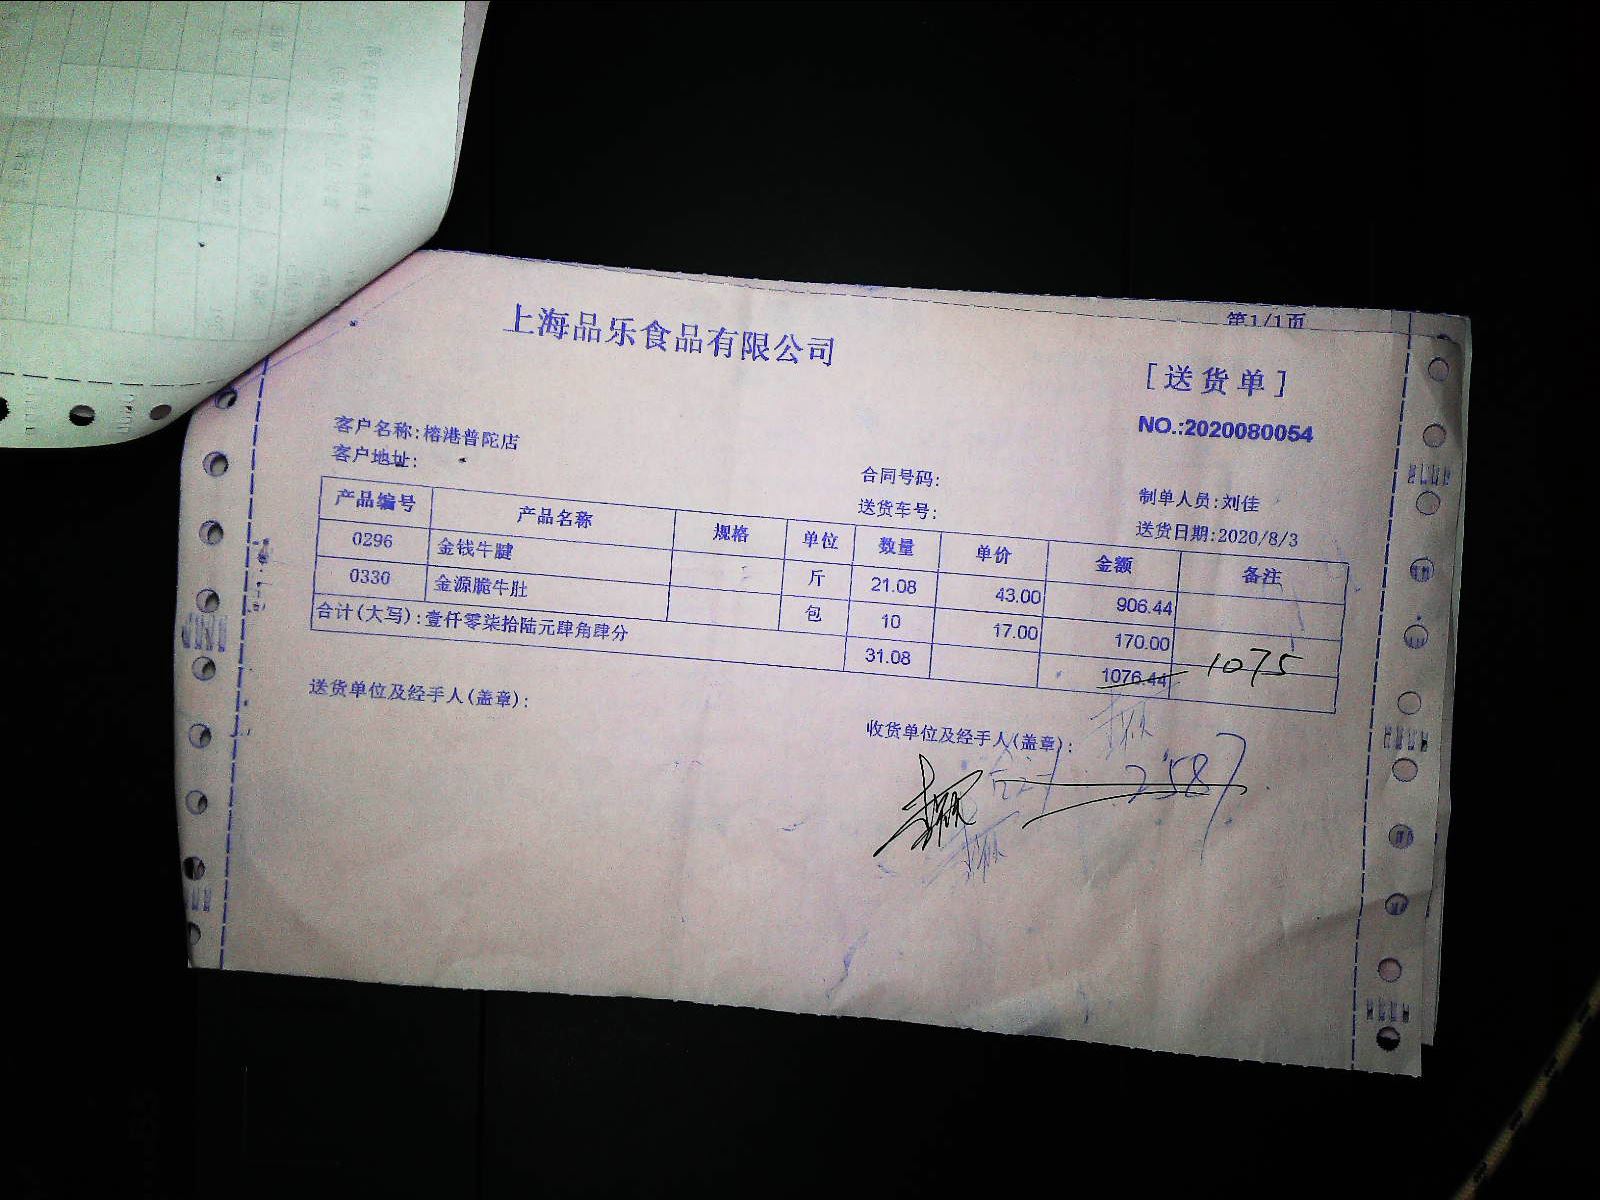 第1/1页
上海品乐食品有限公司
[送货单]
NO.:2020080054
客户名称:榕港普陀店
客户地址:
合同号码:
制单人员:刘佳
送货车号:
送货日期:2020/8/3
产品编号 产品名称 规格 单位 数量 单价 金额 备注
0296 金钱牛腱 斤 21.08 43.00 906.44
0330 金源脆牛肚 包 10 17.00 170.00
合计(大写):壹仟零柒拾陆元肆角肆分 31.08 1076.44 1075
送货单位及经手人(盖章):
收货单位及经手人(盖章):
2587